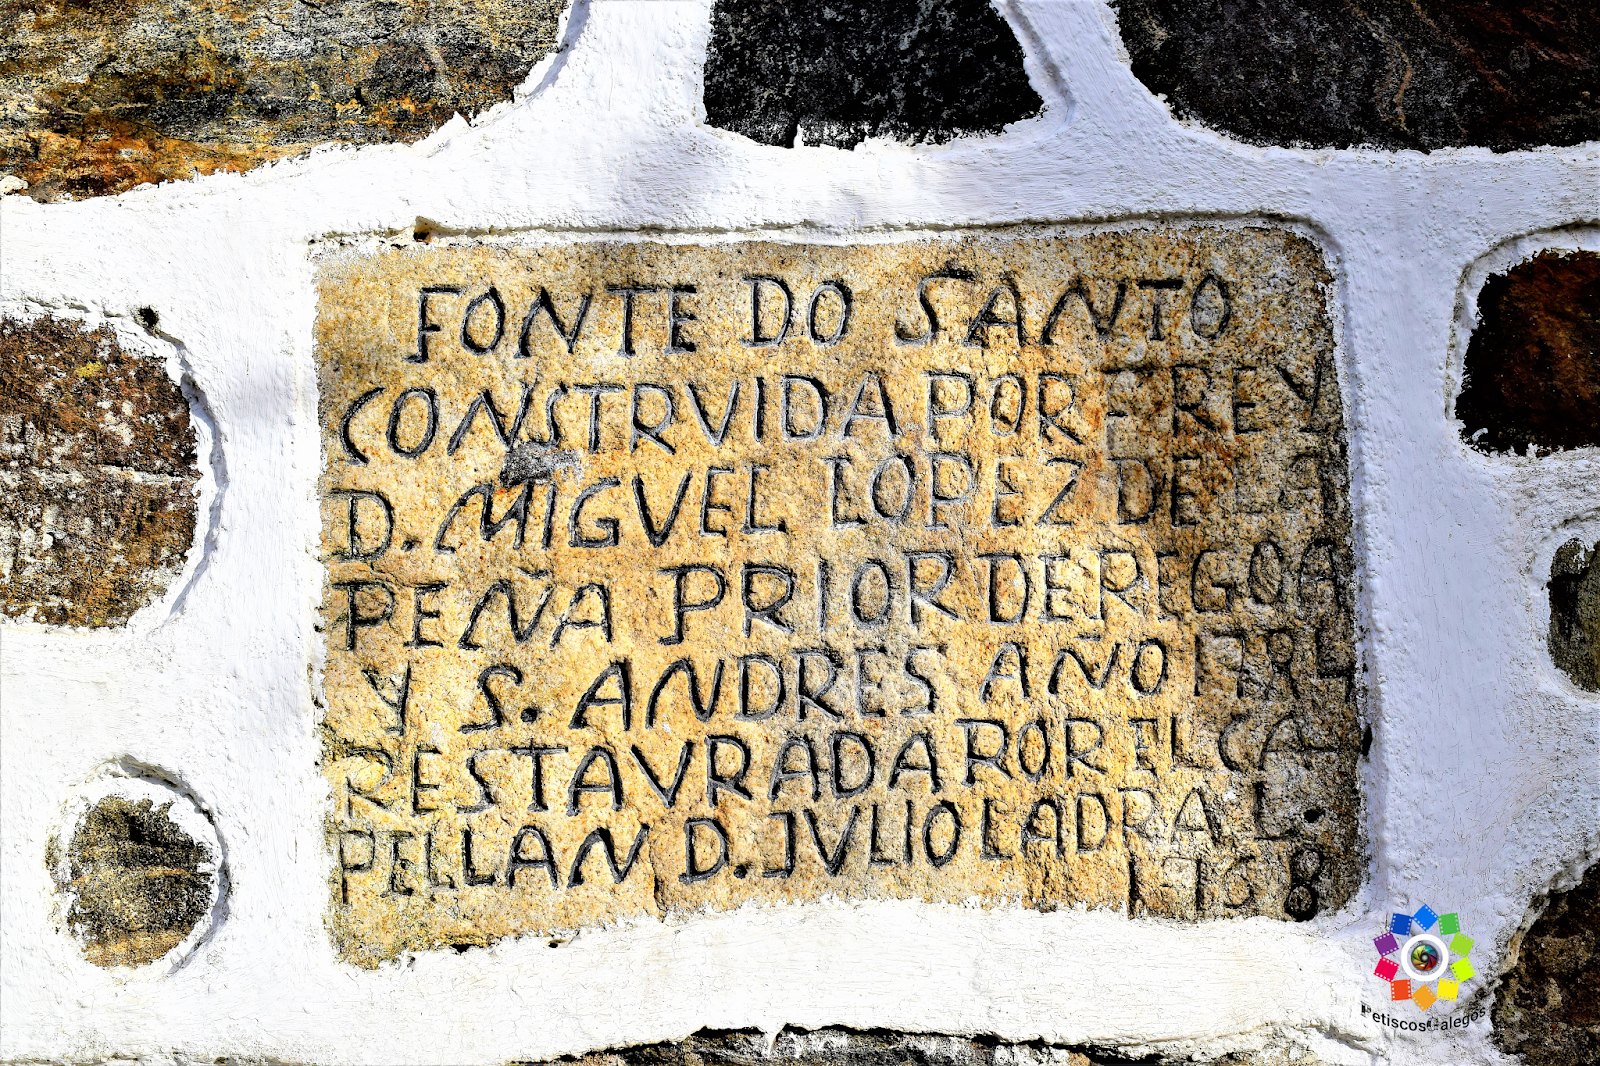 FONTE DO SANTO
CONSTRVIDA POR FREY
D. MIGVEL LOPEZ DE LA
PEÑA PRIOR DE REGOA
Y S. ANDRES AÑO 1784
RESTAVRADA POR EL CA-
PELLAN D. JVLIO LADRA L.
1968
Petiscos Galegos